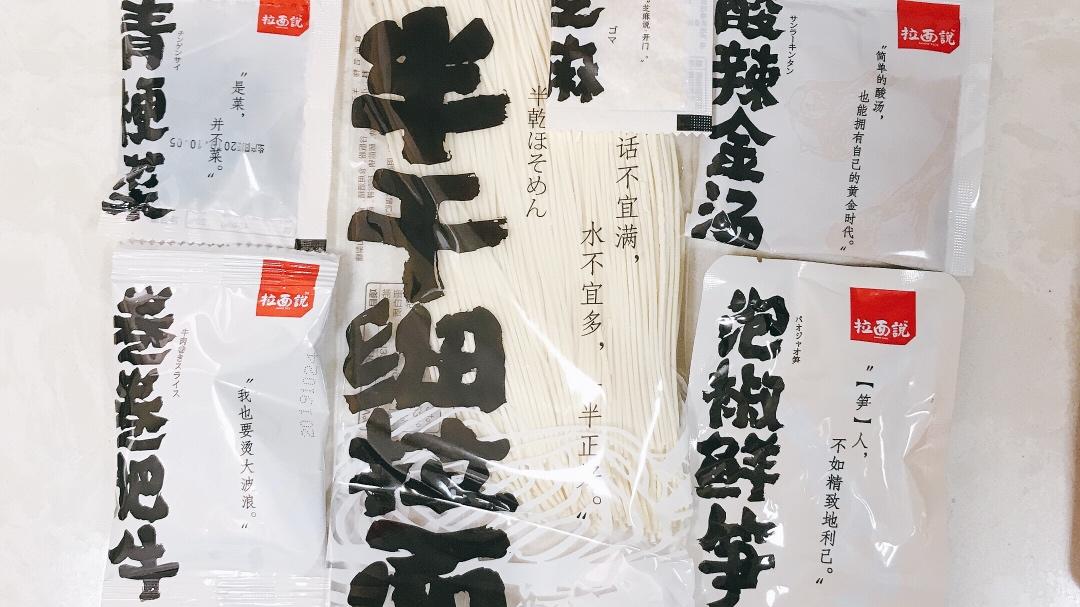 青梗菜
チンゲンサイ
拉面說
"是菜，
并不菜。"
20.10.05
半干细拉面
半乾ほそめん
话不宜满，
水不宜多，
芝麻
ゴマ
芝麻说"开门。"
酸辣金汤
サンラーキンタン
拉面說
"简单的酸汤，
也能拥有自己的黄金时代。"
卷卷肥牛
牛肉巻きスライス
拉面說
"我也要烫大波浪。"
20191024
泡椒鲜笋
パオジャオ笋
拉面說
"【笋】人，
不如精致地利己。"